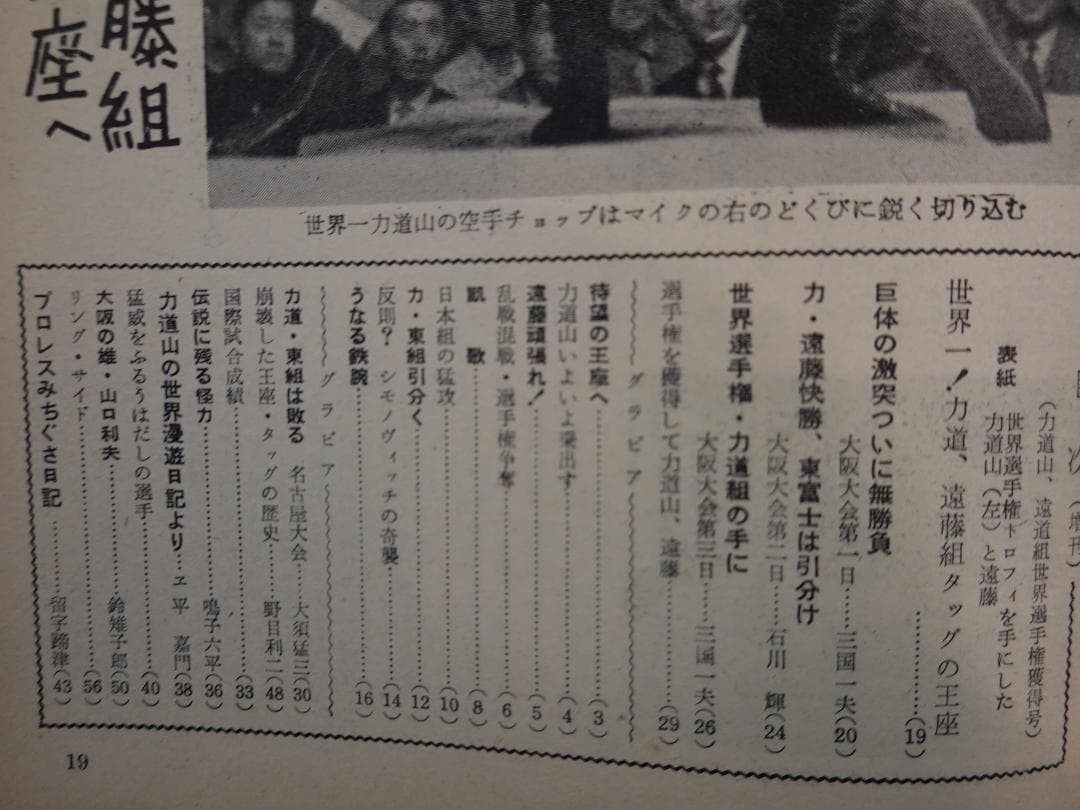 藤組
座へ
世界一力道山の空手チョップはマイクの右のどくびに鋭く切り込む
次（増刊）
（力道山、遠道組世界選手権獲得号）
表紙
世界選手権トロフィを手にした
力道山（左）と遠藤
世界一！力道、遠藤組タッグの王座…………(19)
巨体の激突ついに無勝負
大阪大会第一日……三国一夫(20)
力・遠藤快勝、東富士は引分け
大阪大会第二日……石川　輝(24)
世界選手権・力道組の手に
大阪大会第三日……三国一夫(26)
選手権を獲得して力道山、遠藤………(29)
グラビア
待望の王座へ………(3)
力道山いよいよ乗出す………(4)
遠藤頑張れ！………(5)
乱戦混戦・選手権争奪………(6)
凱　歌………(8)
日本組の猛攻………(10)
力・東組引分く………(12)
反則？　シモノヴィッチの奇襲………(14)
うなる鉄腕………(16)
グラビア
力道・東組は敗る　名古屋大会……大須猛三(30)
崩壊した王座・タッグの歴史……野目利二(48)
国際試合成績………(33)
伝説に残る怪力………鳴子六平(36)
力道山の世界漫遊日記より…ヱ　平　嘉門(38)
猛威をふるうはだしの選手………(40)
大阪の雄・山口利夫………鈴雉子郎(50)
リング・サイド………(56)
プロレスみちぐさ日記………留字蹄津(43)
19